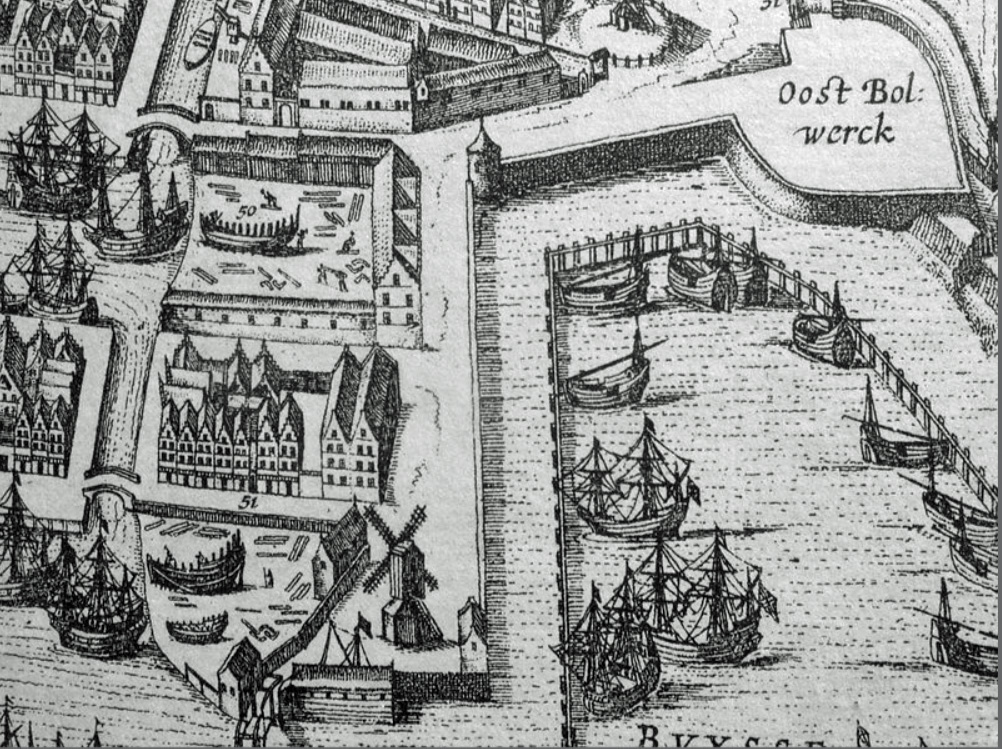 31
Oost Bol:
werck
50
51
BVYSSE